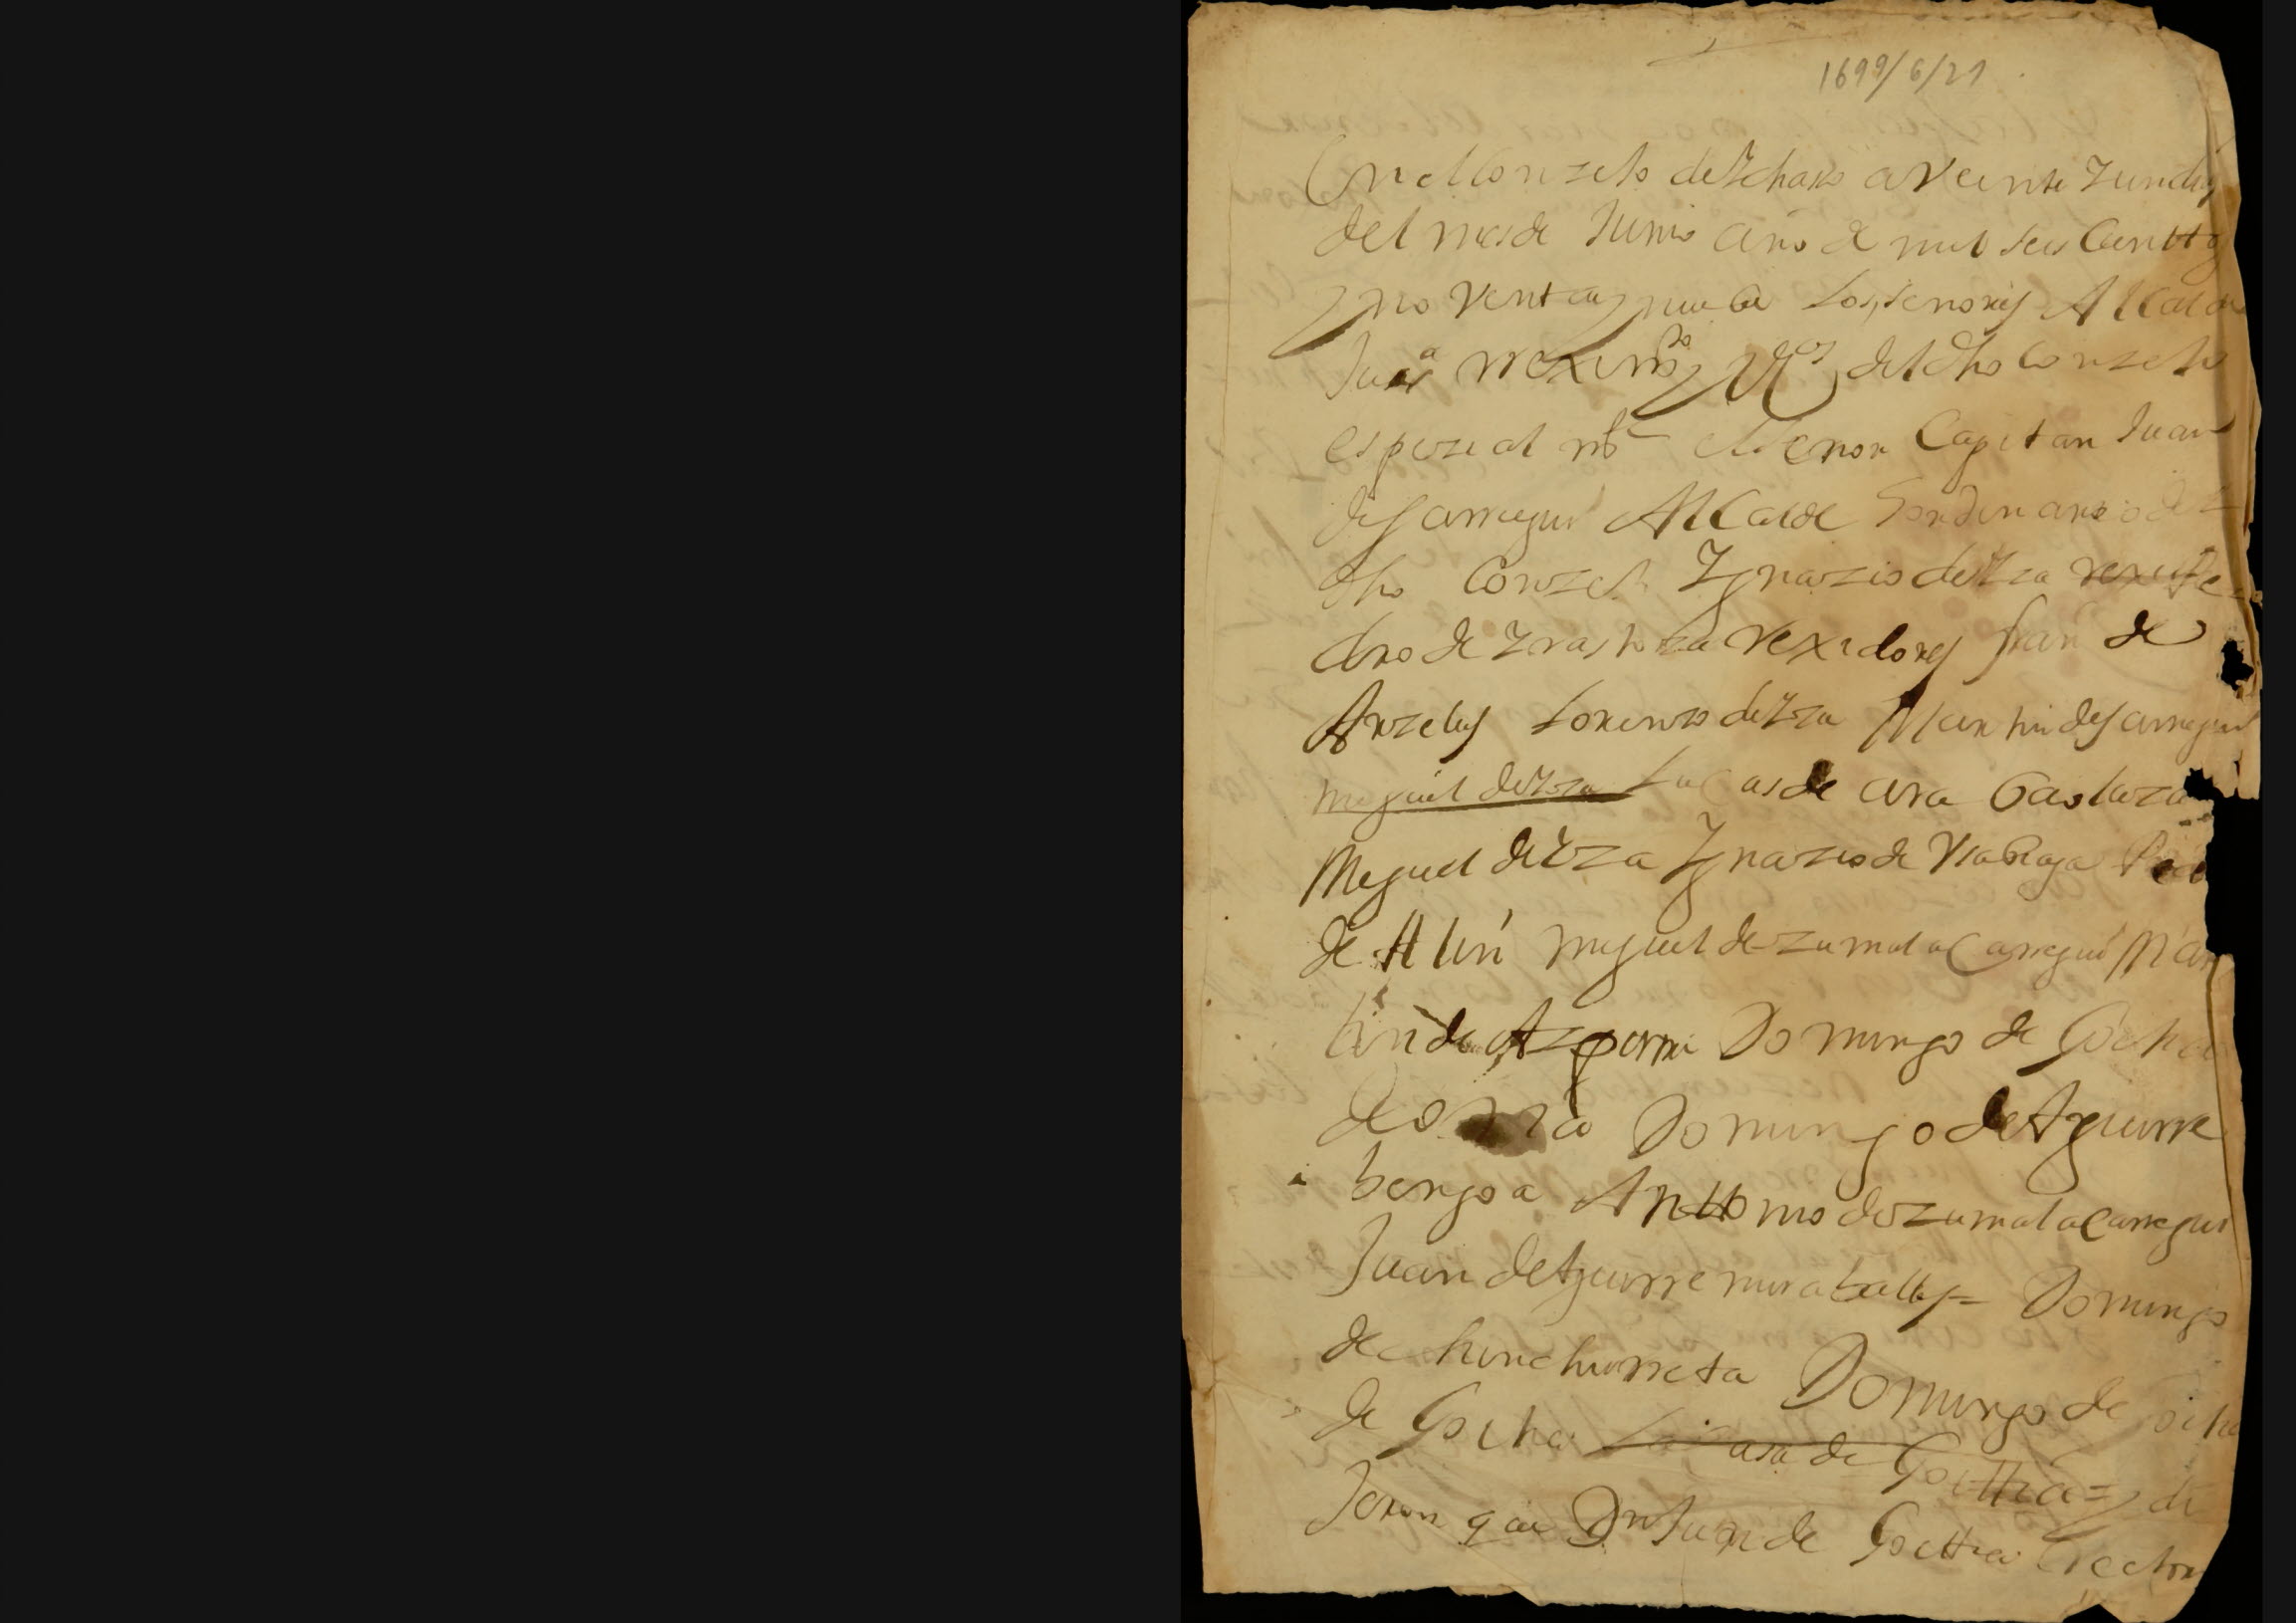 1699/6/21
En el Conzejo de Ychaso a Veinte y un dias
del mes de Junio año de mill seis Cientto
y no Venta y nuebe los senores Alcalde
Jurª rreximto y Vos del dho Conzejo
espezial mte el senor Capitan Juan
de Jarregui Alcalde hordinario de
dho Conzejo Ygnazio de Yza
dro de Yrastorza rexidores fran de
Arzelus Lorenzo de Yza Martin de Jarregui
miguel de Yza Lucas de ara Gastaza
Miguel de Yza Ygnazio de Vrabiaga
de Alin miguel de zumalacarregui Mar
tin de Azporru Domingo de Goitia
de Domingo de Aguirre
bengoa Anttonio de zumalacarregui
Juan de Aguirre miraballes = Domingo
de chinchurreta Domingo de Goitia
de Goitia casa de Goittia = y di
Jeron que Dn Juan de Goittia Rector